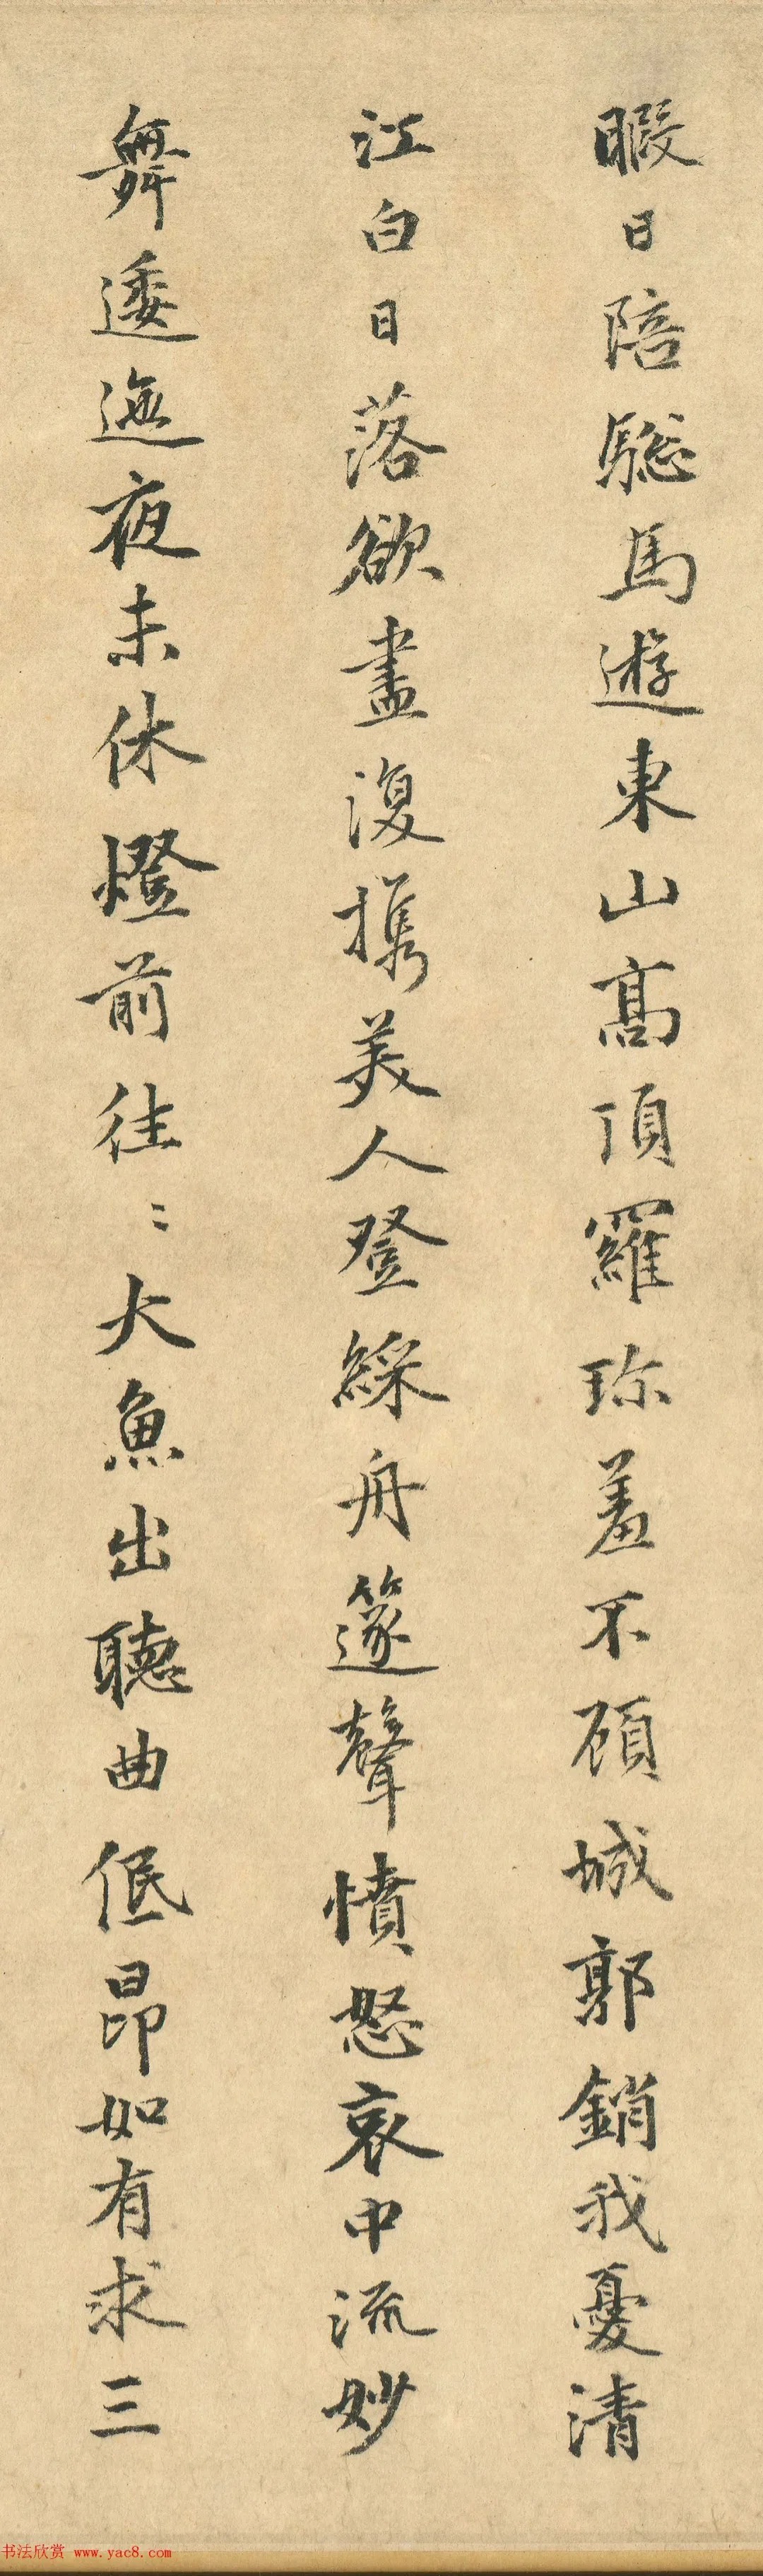 暇日陪驄馬遊東山高頂羅珍羞不顧城郭銷我憂清
江白日落欲盡復攜美人登綵舟篴聲憤怒哀中流妙
舞逶迤夜未休燈前往〻大魚出聽曲低昂如有求三
书法欣赏 www.yac8.com